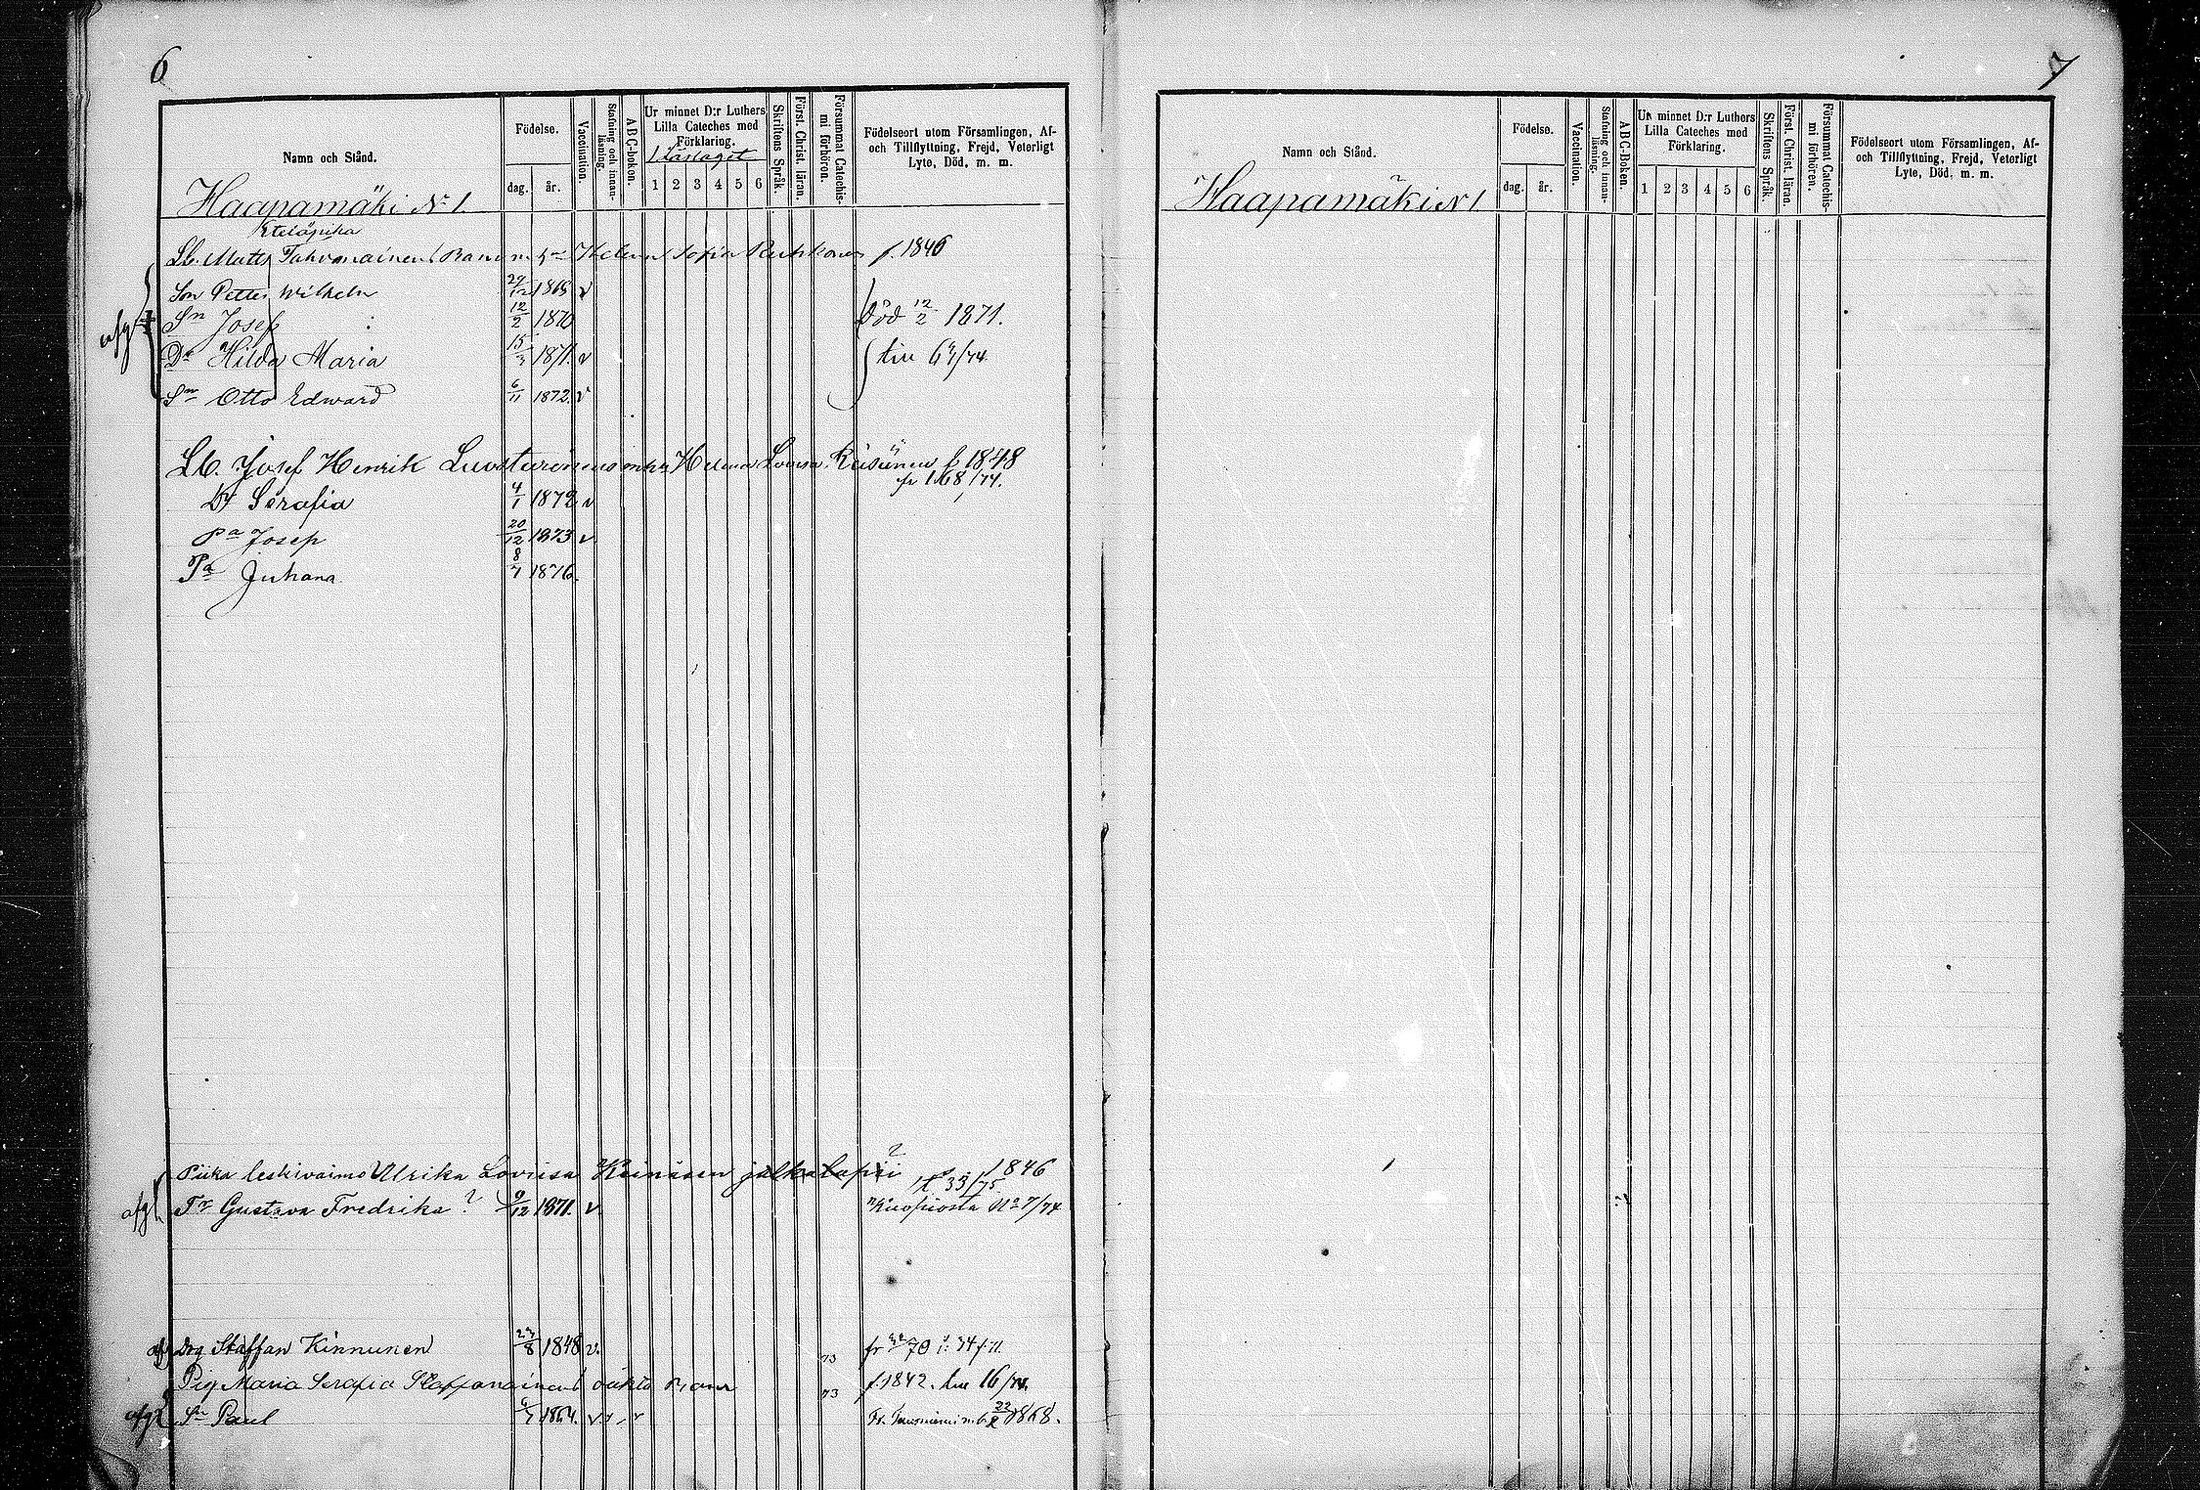 6
Namn och Stånd.
Födelse.
dag. år.
Vaccination.
Stafning och innan-
läsning.
A B C-boken.
Ur minnet D:r Luthers
Lilla Cateches med
Förklaring.
1 2 3 4 5 6
Skriftens Språk.
Först. Christ. läran.
Försummat Catechis-
mi förhören.
Födelseort utom Församlingen, Af-
och Tillflyttning, Frejd, Veterligt
Lyte, Död, m. m.
Haapamäki No 1.
Lb. Matts Tahvanainen Helena Sofia f. 1846
Son Petter Wilhelm 29/12 1868 v
afg Sn Josef 12/2 1870 Död 12/2 1871.
Dr Hilda Maria 15/3 1871. v
Sn Otto Edward 6/11 1872. v
Lb. Josef Henrik Helena Lovisa f 1848
fr 168/74.
Dr Serafia 4/1 1872 v
Pa Josep 20/12 1873 v
Pa Juhana 8/7 1876.
Piika leskivaimo Ulrika Lovisa Keinäsen jälkalapsi ? 1846
33/75
afg Tr Gustava Fredrika ? 9/12 1871. v Kuopiosta No 27/74
Drg Staffan Kinnunen 23/8 1848 v. 73
Pig Maria Serafia Staffanainen 73 f. 1842. 16/74.
afg Sn Paul 1864. 1868.
7
Namn och Stånd.
Födelse.
dag. år.
Vaccination.
Stafning och innan-
läsning.
A B C-Boken.
Ur minnet D:r Luthers
Lilla Cateches med
Förklaring.
1 2 3 4 5 6
Skriftens Språk.
Först. Christ. läran.
Försummat Catechis-
mi förhören.
Födelseort utom Församlingen, Af-
och Tillflyttning, Frejd, Veterligt
Lyte, Död, m. m.
Haapamäki N 1